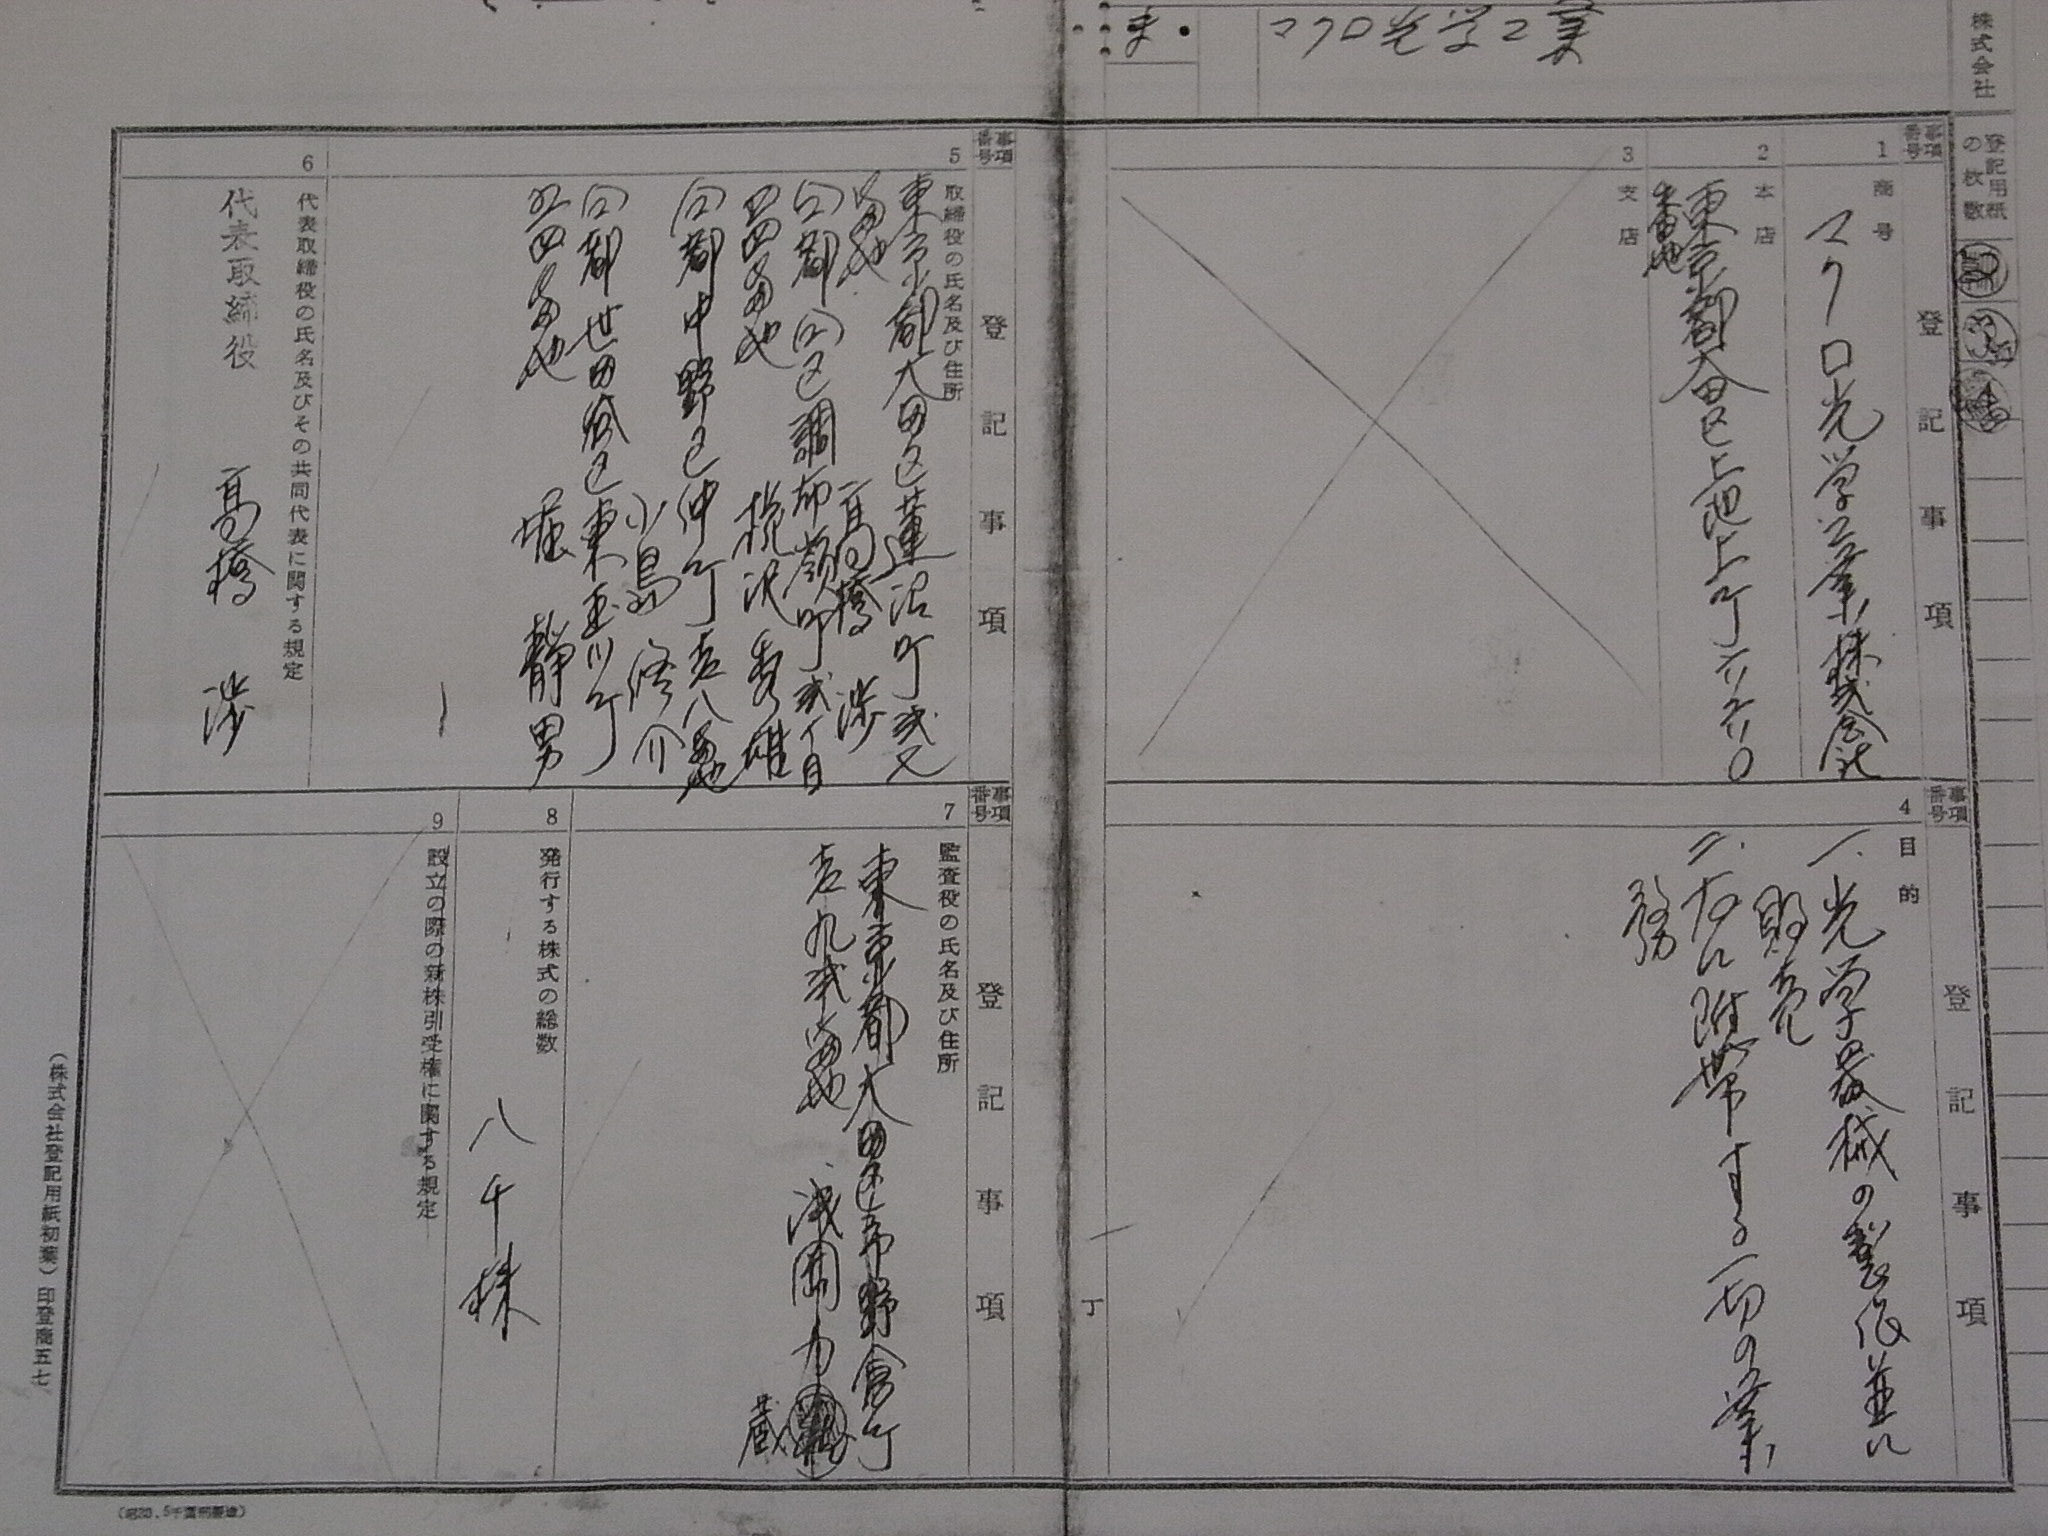 株式会社
マクロ光学工業
ま
登記用紙の枚数
事項番号
登記事項
1
商号
マクロ光学工業株式会社
2
本店
東京都大田区上池上町六六〇
番地
3
支店
事項番号
登記事項
4
目的
一、光学器械の製作並に
販売
二、右に附帯する一切の業
務
丁
事項番号
登記事項
5
取締役の氏名及び住所
東京都大田区蓮沼町弐ノ
番地
高橋 渉
仝都仝区調布嶺町弐丁目
四番地
秀雄
仝都中野区仲町壱八番地
小島 修介
仝都世田谷区東玉川町
四番地
堀 静男
6
代表取締役の氏名及びその共同代表に関する規定
代表取締役 高橋 渉
事項番号
登記事項
7
監査役の氏名及び住所
東京都大田区市野倉町
壱九弐番地
浅岡力
蔵
8
発行する株式の総数
八千株
9
設立の際の新株引受権に関する規定
(株式会社登記用紙初葉)印登商五七